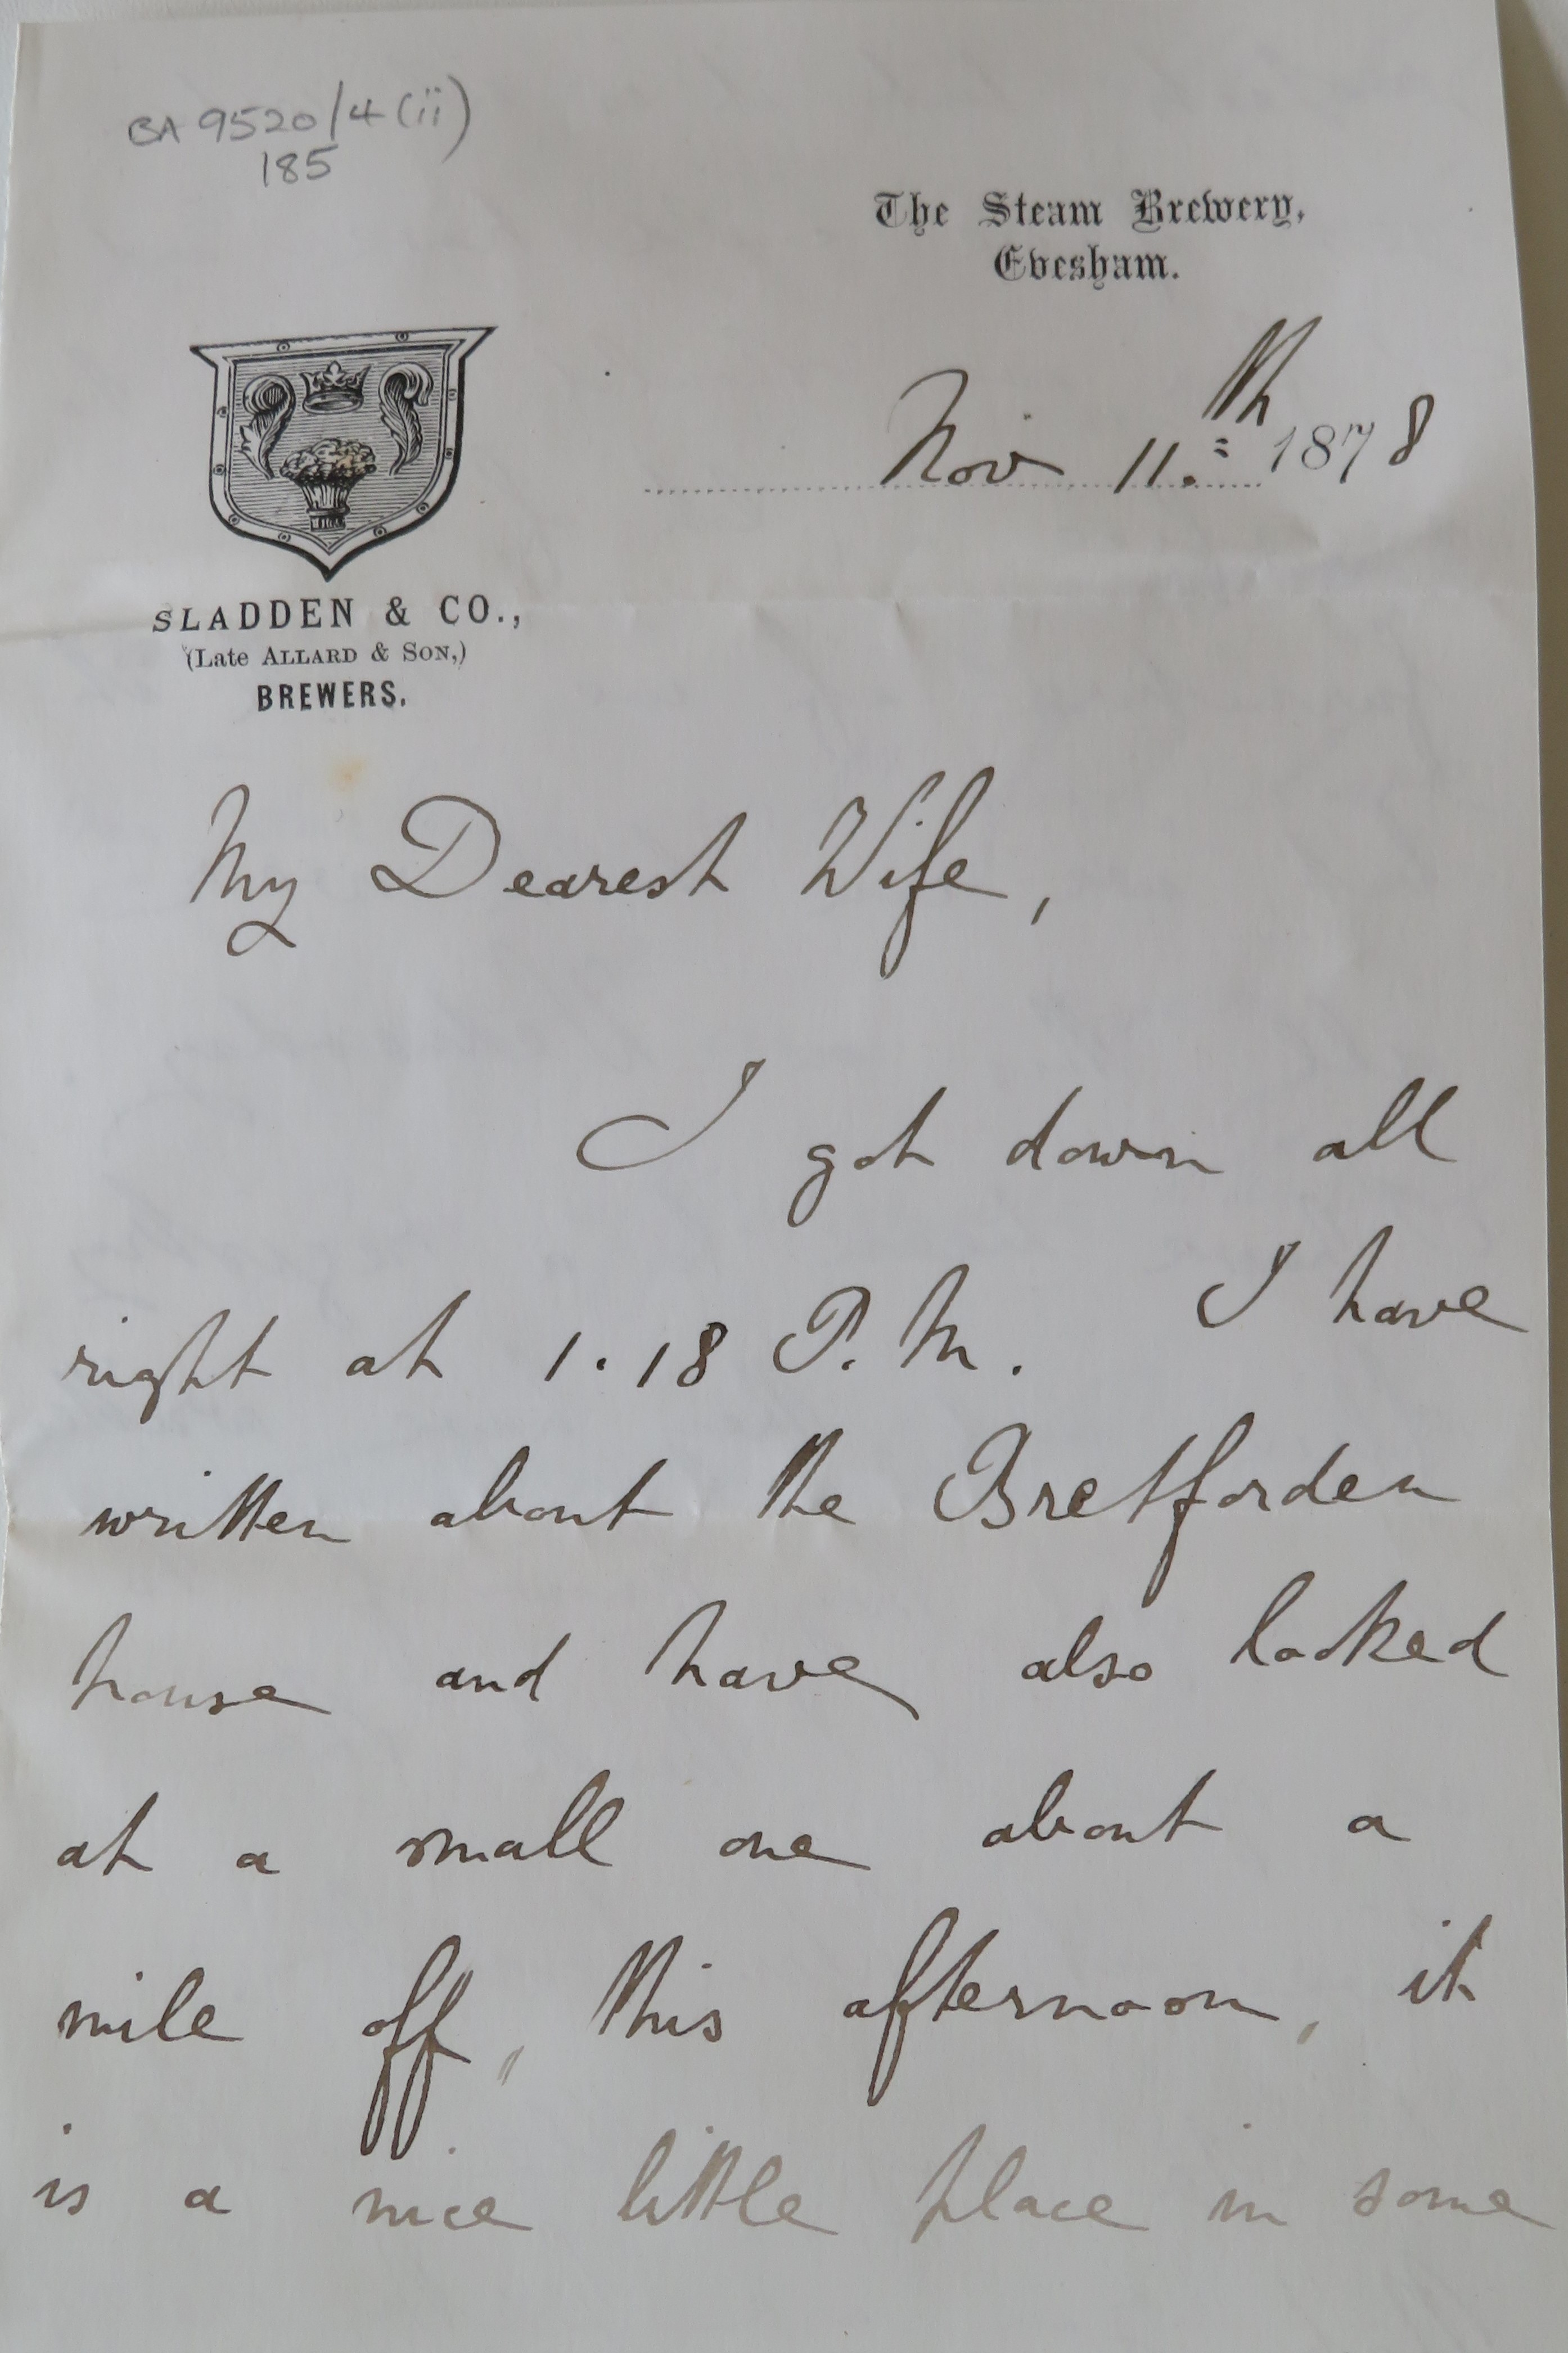 BA 9520/4(ii)
185
The Steam Brewery,
Evesham.
Nov 11.th 1878
SLADDEN & CO.,
(Late ALLARD & SON,)
BREWERS.
My Dearest Wife,
I got down all
right at 1.18 P.M. I have
written about the Bretforden
house and have also looked
at a small one about a
mile off, this afternoon, it
is a nice little place in some